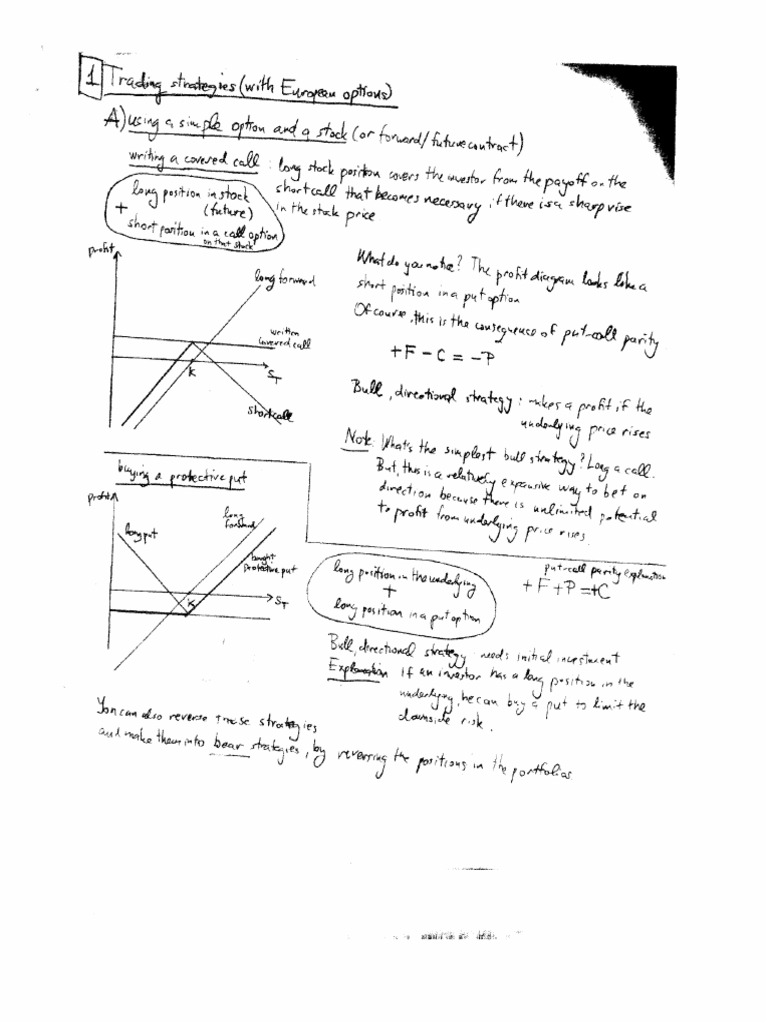 1 Trading strategies (with European options)
A) using a simple option and a stock (or forward/future contract)
writing a covered call : long stock position covers the investor from the payoff on the
short call that becomes necessary if there is a sharp rise
in the stock price
long position in stock
(future)
+
short position in a call option
on that stock
profit
long forward
written
covered call
K
S_T
short call
What do you notice? The profit diagram looks like a
short position in a put option
Of course, this is the consequence of put-call parity
+F - C = -P
Bull, directional strategy : makes a profit if the
underlying price rises
Note: What's the simplest bull strategy? Long a call.
But, this is a relatively expensive way to bet on
direction because there is unlimited potential
to profit from underlying price rises.
buying a protective put
profit
long put
long
forward
bought
protective put
K
S_T
long position in the underlying
+
long position in a put option
put-call parity explanation
+F+P=+C
Bull, directional strategy needs initial investment
Explanation If an investor has a long position in the
underlying, he can buy a put to limit the
downside risk.
You can also reverse these strategies
and make them into bear strategies, by reversing the positions in the portfolios